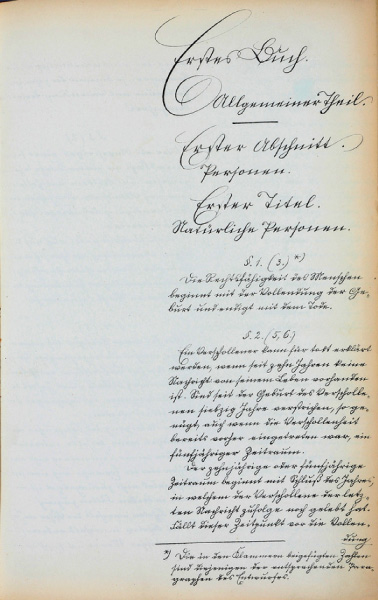 Erstes Buch.
Allgemeiner Theil.
Erster Abschnitt.
Personen.
Erster Titel.
Natürliche Personen.
§. 1. (3.) *)
Die Rechtsfähigkeit des Menschen
beginnt mit der Vollendung der Ge-
burt und endigt mit dem Tode.
§. 2. (5, 6.)
Ein Verschollener kann für todt erklärt
werden, wenn seit zehn Jahren keine
Nachricht von seinem Leben vorhanden
ist. Sind seit der Geburt des Verscholle-
nen siebzig Jahre verstrichen, so ge-
nügt, auch wenn die Verschollenheit
bereits vorher eingetreten war, ein
fünfjähriger Zeitraum.
Der zehnjährige oder fünfjährige
Zeitraum beginnt mit Schluß des Jahres,
in welchem der Verschollene der letz-
ten Nachricht zufolge noch gelebt hat.
Fällt dieser Zeitpunkt vor die Vollen-
dung
*) Die in den Klammern beigefügten Zahlen
sind diejenigen der entsprechenden Para-
graphen des Entwurfes.